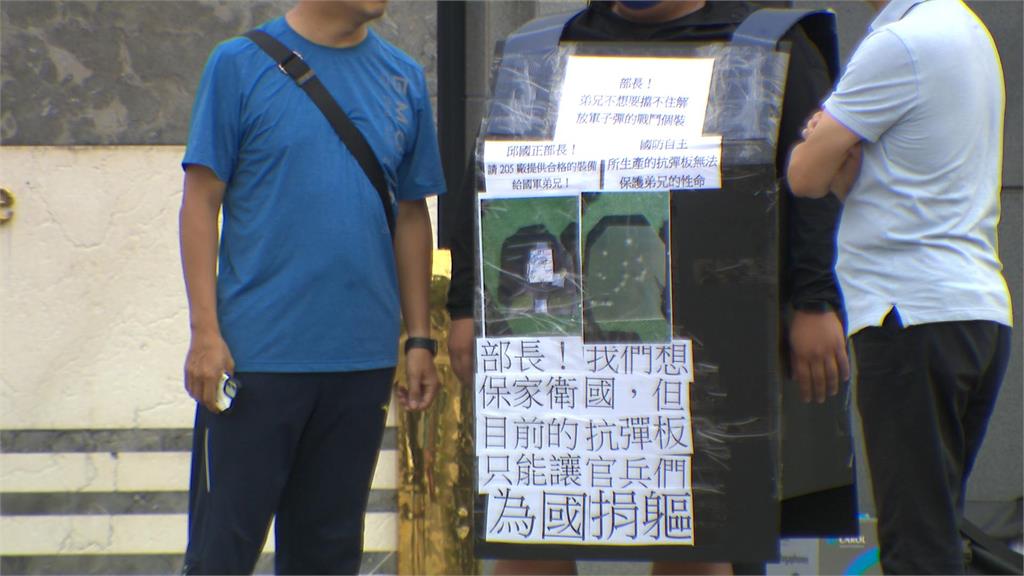 部長！
弟兄不想要擋不住解
放軍子彈的戰鬥個裝
邱國正部長！
請 205 廠提供合格的裝備
給國軍弟兄！
國防自主
所生產的抗彈板無法
保護弟兄的性命
部長！我們想
保家衛國，但
目前的抗彈板
只能讓官兵們
為國捐軀